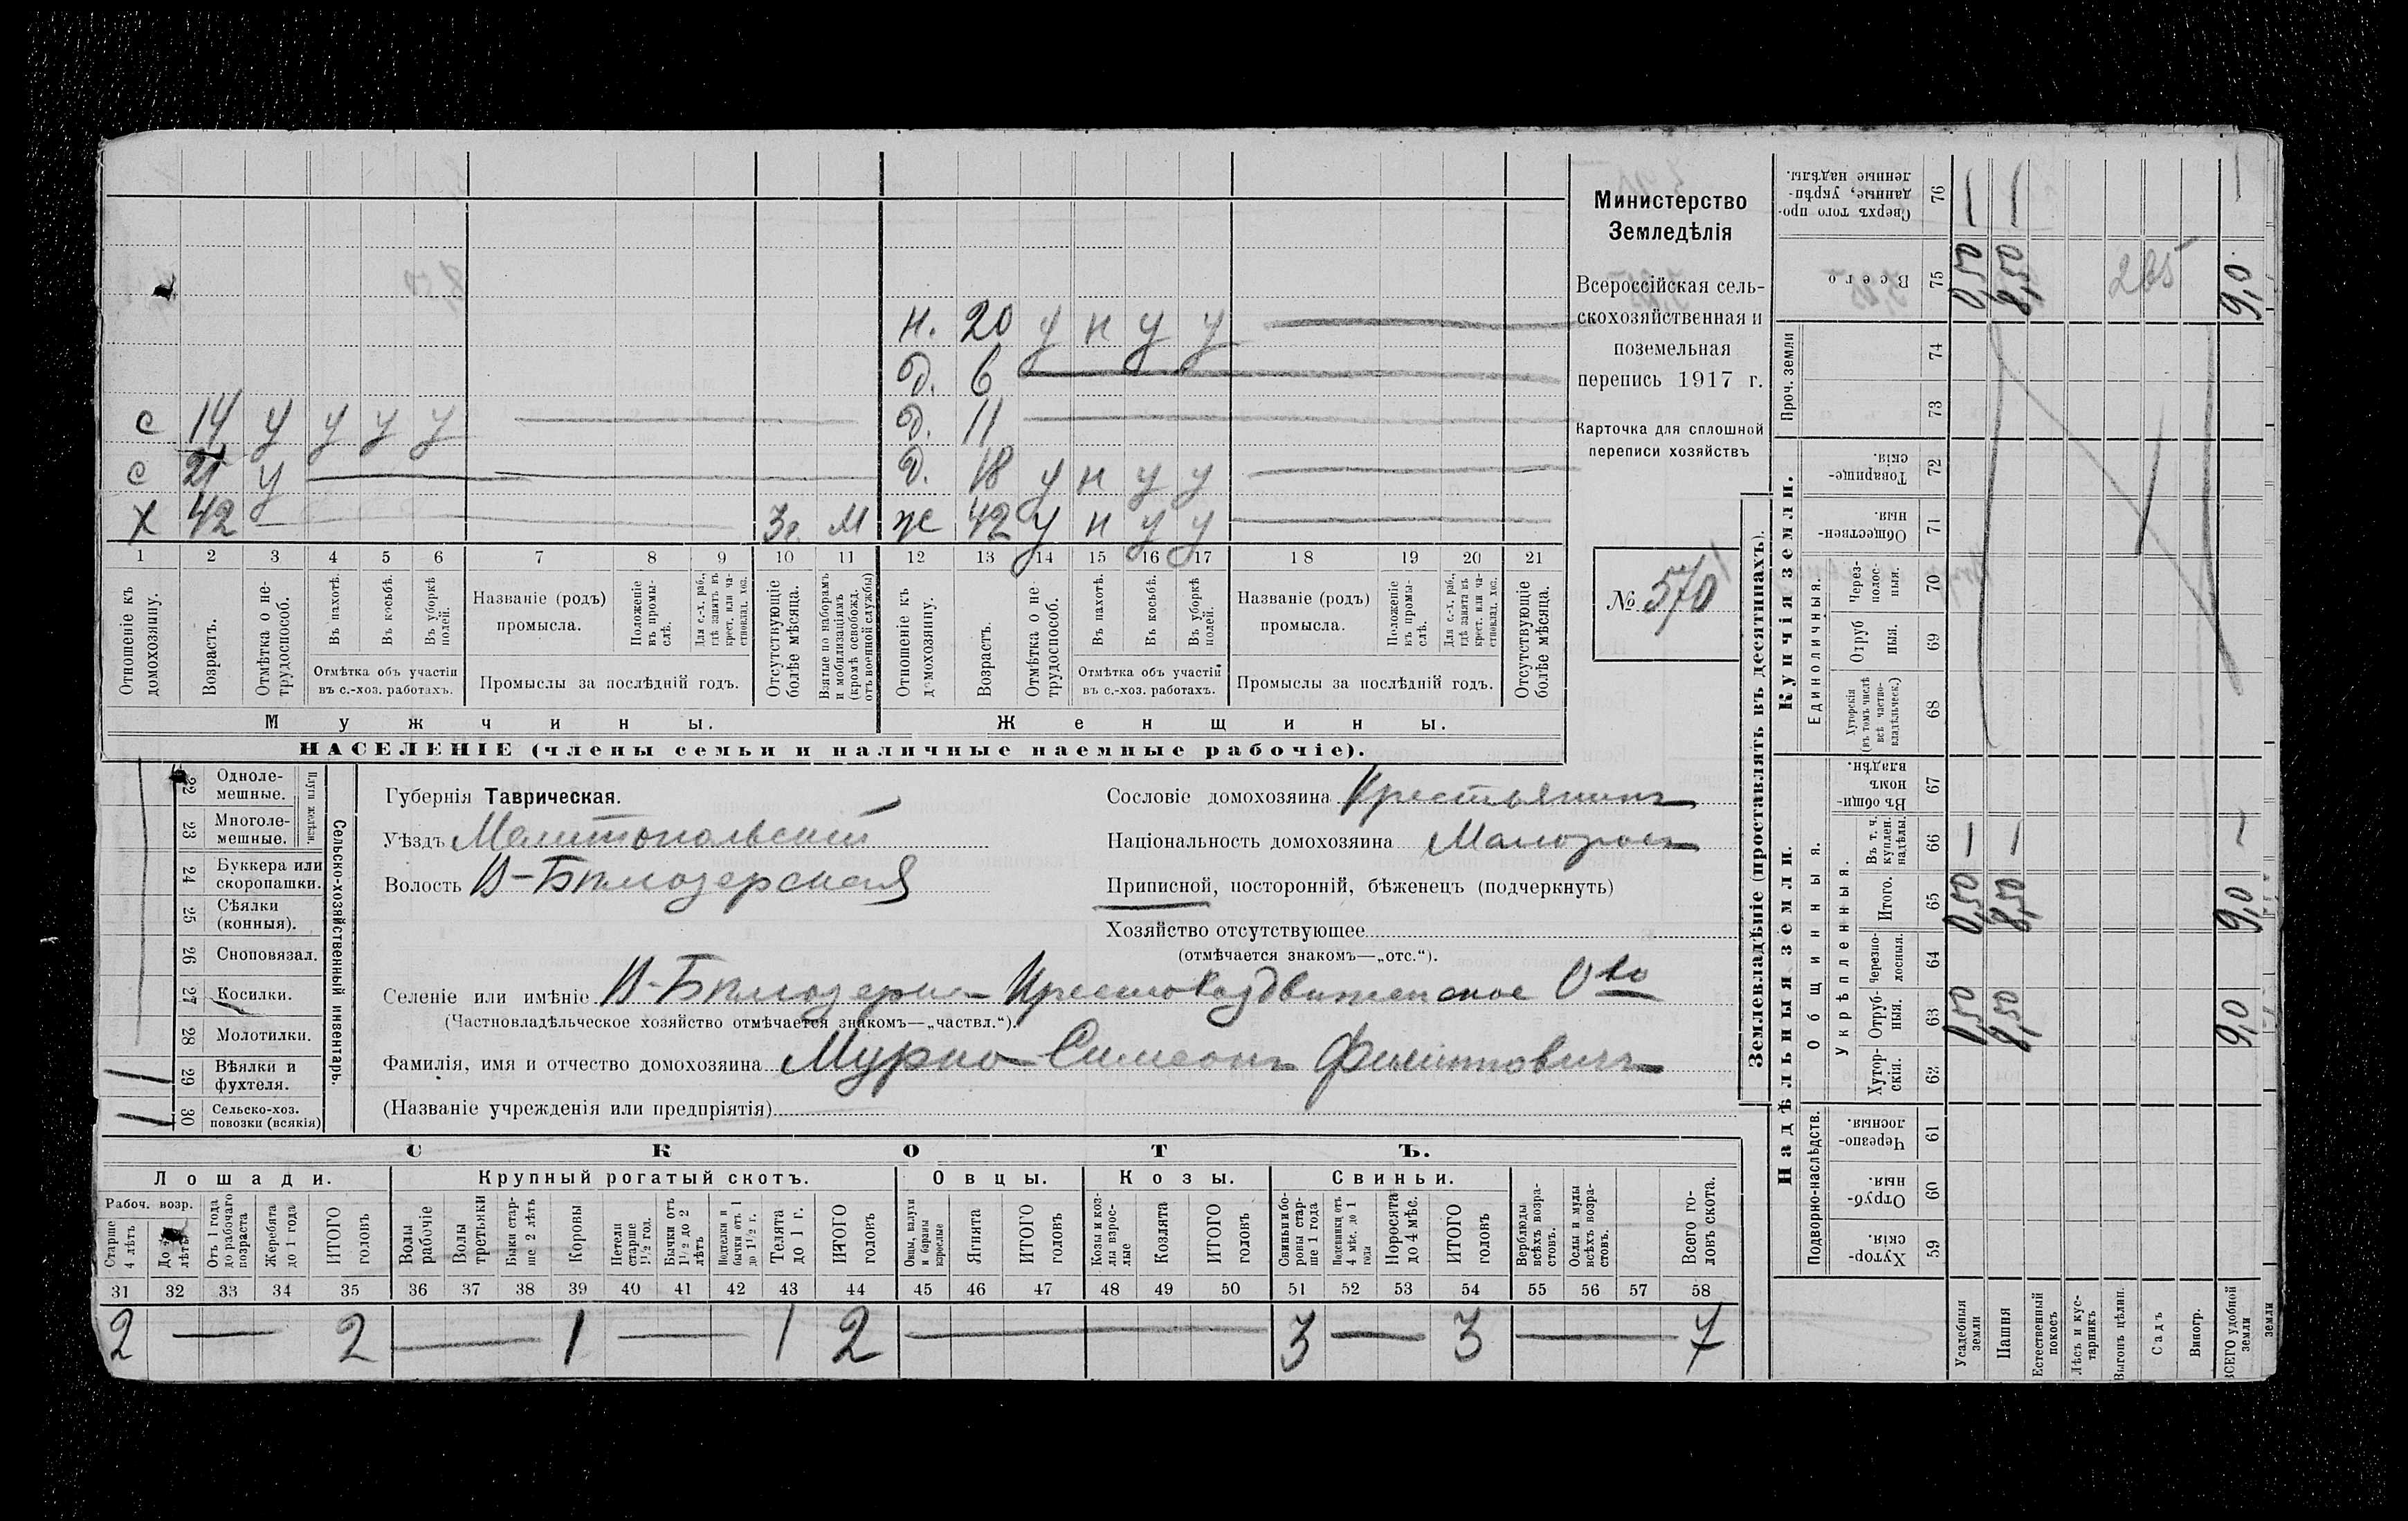 н. 20 у н у у
д. 6
с 14 у у у у д. 11
с 21 у д. 18 у н у у
х 42 3г. м ж 42 у н у у
1 2 3 4 5 6 7 8 9 10 11 12 13 14 15 16 17 18 19 20 21
Отношеніе къ домохозяину.
Возрастъ.
Отмѣтка о нетрудоспособ.
Въ пахотѣ.
Въ косьбѣ.
Въ уборкѣ полей.
Отмѣтка объ участіи въ с.-хоз. работахъ.
Названіе (родъ) промысла.
Положеніе въ промыслѣ.
Для с.-х. раб., гдѣ занятъ въ крест. или частновлад. хоз.
Промыслы за послѣдній годъ.
Отсутствующіе болѣе мѣсяца.
Взятые по наборамъ и мобилизаціямъ (кромѣ освобожд. отъ военной службы)
Отношеніе къ домохозяину.
Возрастъ.
Отмѣтка о нетрудоспособ.
Въ пахотѣ.
Въ косьбѣ.
Въ уборкѣ полей.
Отмѣтка объ участіи въ с.-хоз. работахъ.
Названіе (родъ) промысла.
Положеніе въ промыслѣ.
Для с.-х. раб., гдѣ занята въ крест. или частновлад. хоз.
Промыслы за послѣдній годъ.
Отсутствующіе болѣе мѣсяца.
Мужчины. Женщины.
НАСЕЛЕНІЕ (члены семьи и наличные наемные рабочіе).
Министерство
Земледѣлія
Всероссійская сель-
скохозяйственная и
поземельная
перепись 1917 г.
Карточка для сплошной
переписи хозяйствъ
№ 570
22 Одноле-
мешные.
23 Многоле-
мешные.
Плуги желѣзн.
24 Буккера или
скоропашки.
25 Сѣялки
(конныя).
26 Сноповязал.
27 Косилки.
28 Молотилки.
29 Вѣялки и
фухтеля. 1
30 Сельско-хоз.
повозки (всякія) 1
Сельско-хозяйственный инвентарь.
Губернія Таврическая.
Уѣздъ Мелитопольскій
Волость В-Бѣлозерская
Сословіе домохозяина Крестьянинъ
Національность домохозяина Малоросъ
Приписной, посторонній, бѣженецъ (подчеркнуть)
Хозяйство отсутствующее
(отмѣчается знакомъ—„отс.“).
Селеніе или имѣніе В-Бѣлозерка Крестовоздвиженское О-во
(Частновладѣльческое хозяйство отмѣчается знакомъ—„частвл.“).
Фамилія, имя и отчество домохозяина Мурко Симеонъ Филиповичъ
(Названіе учрежденія или предпріятія)
СКОТЪ.
Лошади. Крупный рогатый скотъ. Овцы. Козы. Свиньи.
Рабоч. возр.
Старше 4 лѣтъ
До 4 лѣтъ
Отъ 1 года до рабочаго возраста
Жеребята до 1 года
ИТОГО головъ
Волы рабочіе
Волы третьяки
Быки старше 2 лѣтъ
Коровы
Нетели старше 1½ год.
Бычки отъ 1½ до 2 лѣтъ
Подтелки и бычки отъ 1 до 1½ г.
Телята до 1 г.
ИТОГО головъ
Овцы, валухи и бараны взрослые
Ягнята
ИТОГО головъ
Козы и козлы взрослые
Козлята
ИТОГО головъ
Свиньи и боровы старше 1 года
Подсвинки отъ 4 мѣс. до 1 года
Поросята до 4 мѣс.
ИТОГО головъ
Верблюды всѣхъ возрастовъ.
Ослы и мулы всѣхъ возрастовъ.
Всего головъ скота.
31 32 33 34 35 36 37 38 39 40 41 42 43 44 45 46 47 48 49 50 51 52 53 54 55 56 57 58
2 — 2 — 1 — 1 2 — 3 — 3 — 7
Землевладѣніе (проставлять въ десятинахъ).
Надѣльныя земли. Купчія земли.
Подворно-наслѣдств.
Общинныя.
Укрѣпленныя.
Единоличныя.
Проч. земли
Хуторскія. 59
Отрубныя. 60
Черезполосныя. 61
Хуторскія. 62
Отрубныя. 63
Черезполосныя. 64
Итого. 65
Въ т. ч. куплен. надѣлы. 66
Въ общинномъ владѣн. 67
Хуторскія (въ томъ числѣ всѣ частновладѣльческ.) 68
Отрубныя. 69
Черезполосныя. 70
Общественныя. 71
Товарищескія. 72
73
74
Всего 75
Сверхъ того проданные, укрѣпленные надѣлы. 76
Усадебныя земли 0,50 0,50 — 0,50 —
Пашня 8,50 8,50 — 8,50 —
Естественный покосъ
Лѣсъ и кустарникъ
Выгонъ цѣлин. 265
Садъ
Виногр.
ВСЕГО удобной земли 9,0 9,0 — 9,0 —
земли